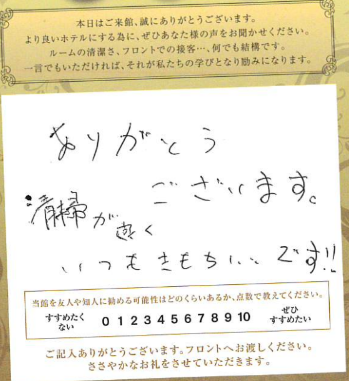 本日はご来館、誠にありがとうございます。
より良いホテルにする為に、ぜひあなた様の声をお聞かせください。
ルームの清潔さ、フロントでの接客…、何でも結構です。
一言でもいただければ、それが私たちの学びとなり励みになります。
ありがとう
ございます。
清掃が
いつもきもちいいです!!
当館を友人や知人に勧める可能性はどのくらいあるか、点数で教えてください。
すすめたくない 0 1 2 3 4 5 6 7 8 9 10 ぜひすすめたい
ご記入ありがとうございます。フロントへお渡しください。
ささやかなお礼をさせていただきます。